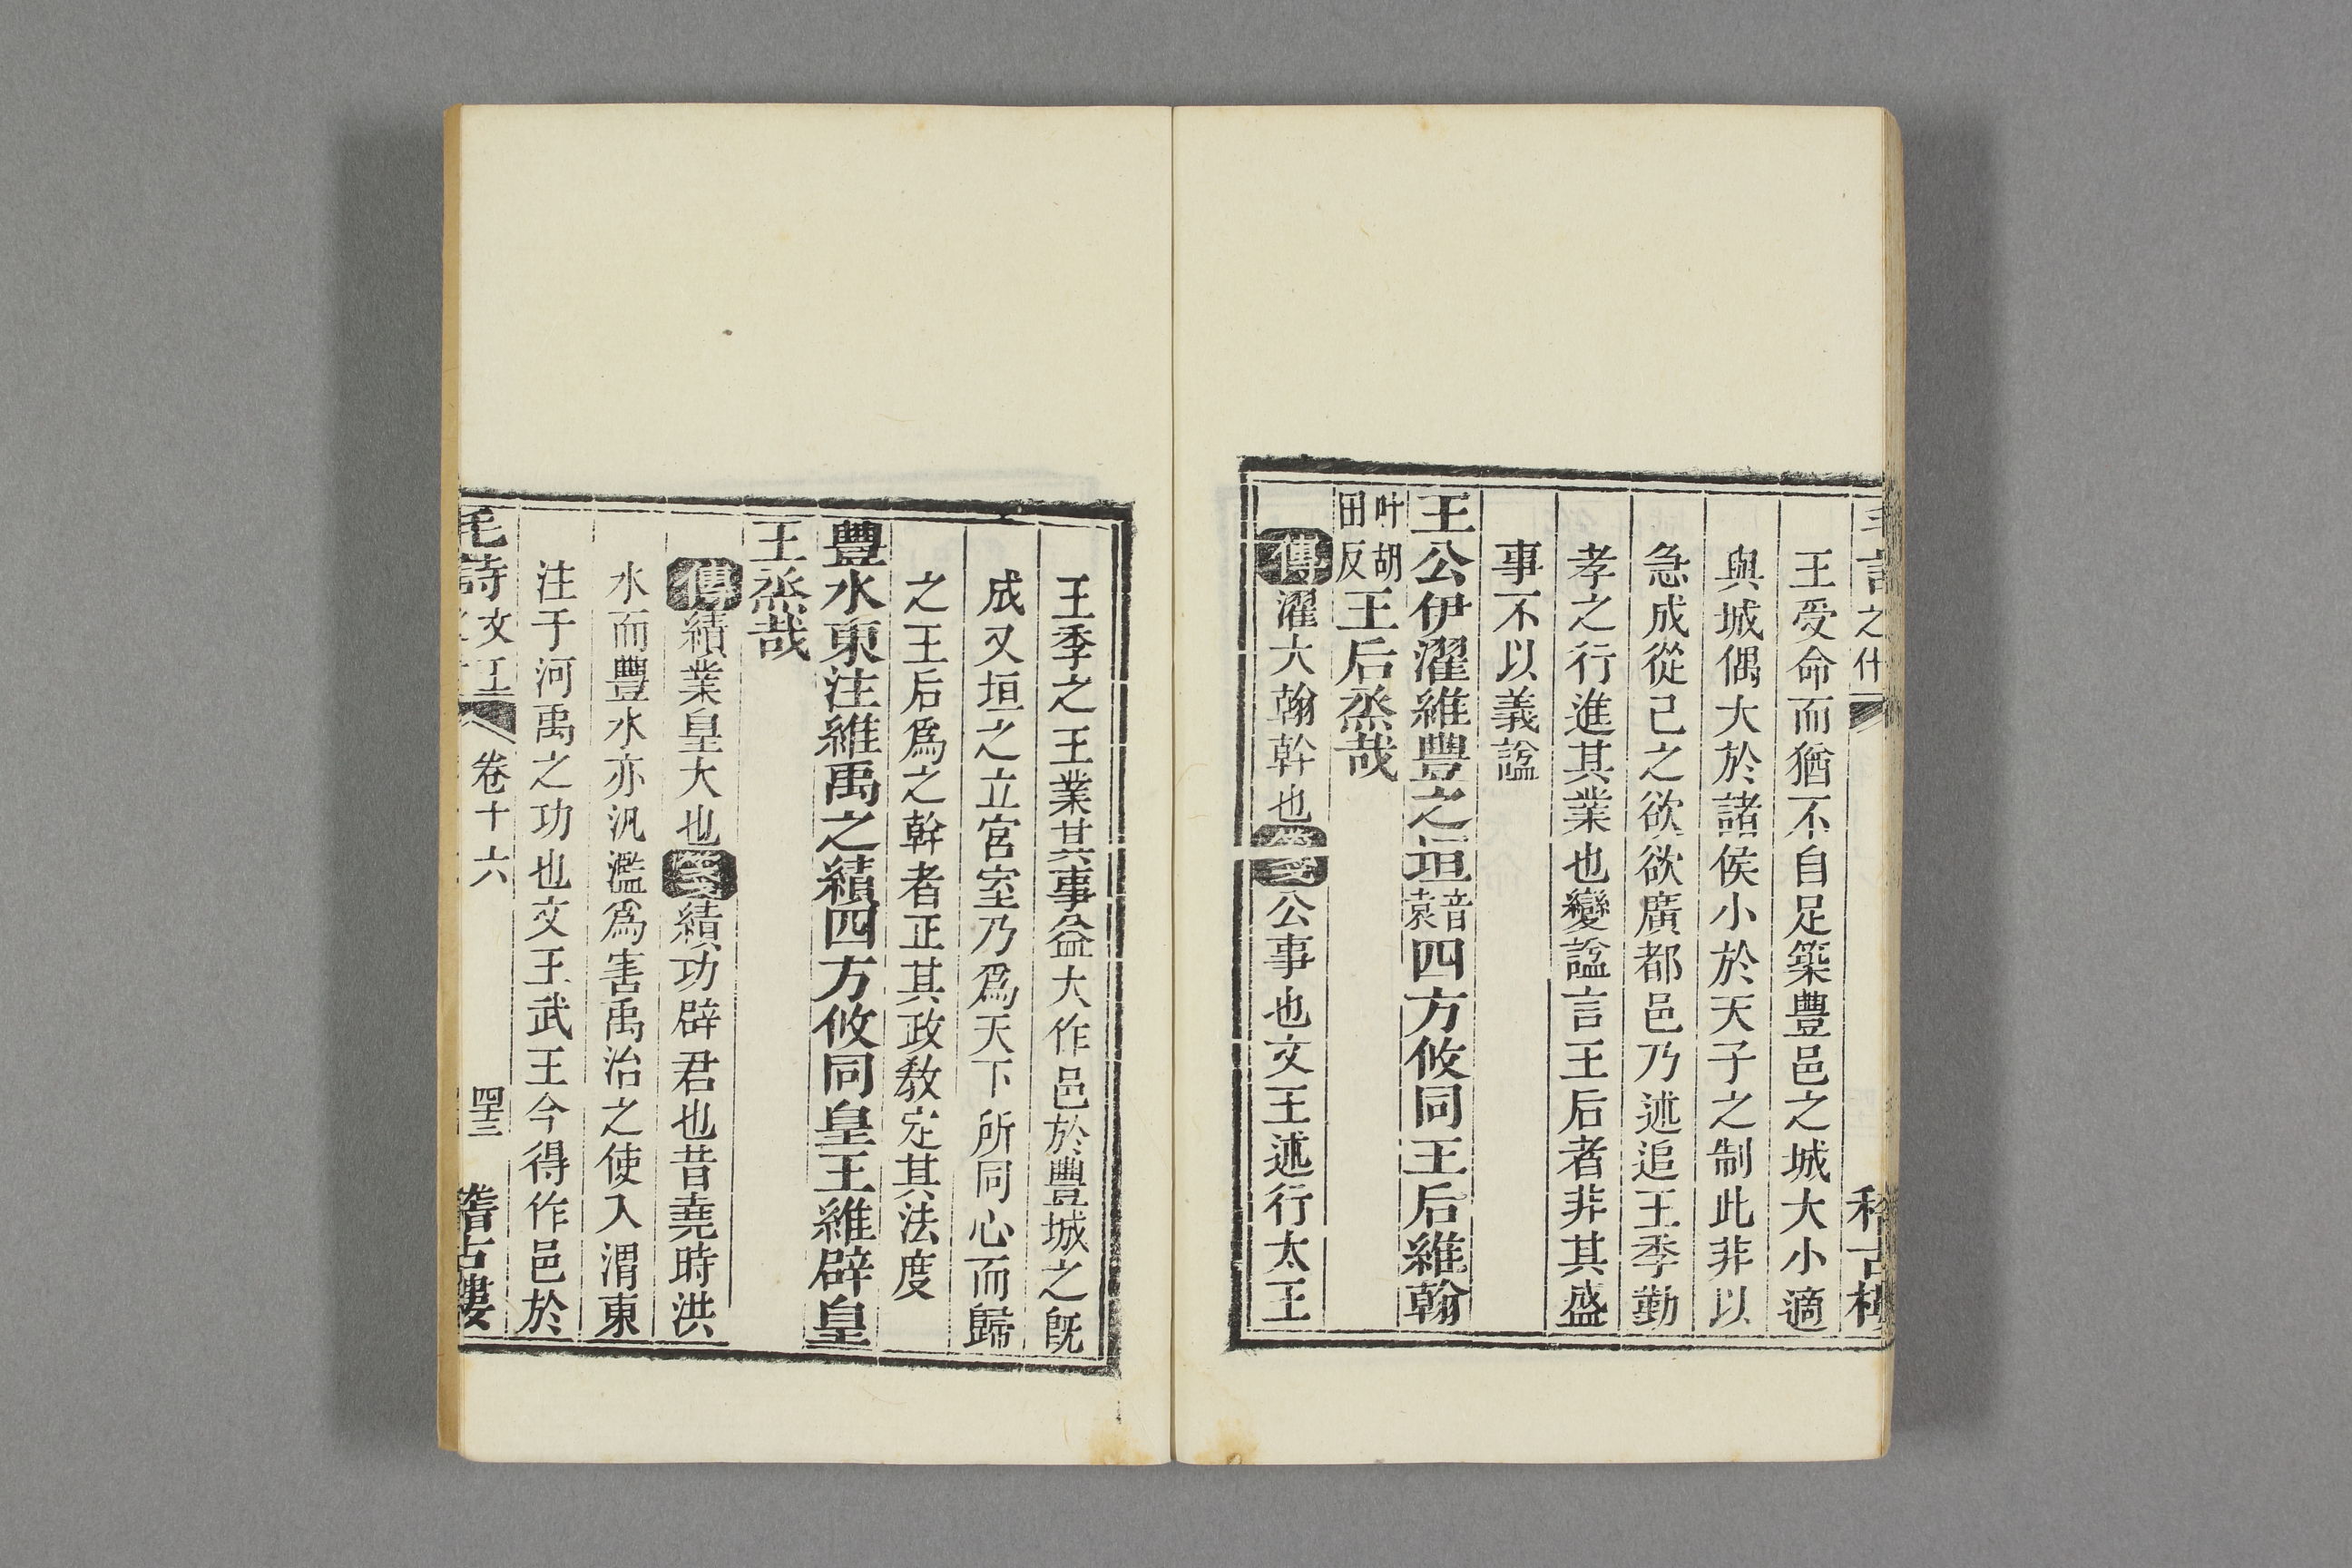 之什
王受命而猶不自足築豐邑之城大小適
與城偶大於諸侯小於天子之制此非以
急成從己之欲欲廣都邑乃述追王季勤
孝之行進其業也變諡言王后者非其盛
事不以義諡
王公伊濯維豐之垣音袁四方攸同王后維翰
叶胡田反王后烝哉
傳濯大翰幹也箋公事也文王述行太王
王季之王業其事益大作邑於豐城之旣
成又垣之立宮室乃爲天下所同心而歸
之王后爲之幹者正其政敎定其法度
豐水東注維禹之績四方攸同皇王維辟皇
王烝哉
傳績業皇大也箋績功辟君也昔堯時洪
水而豐水亦汎濫爲害禹治之使入渭東
注于河禹之功也文王武王今得作邑於
毛詩 文王 卷十六 四十三